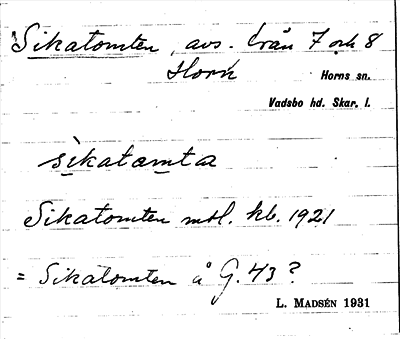 Sikatomten, avs. från 7 och 8
Horn
Horns sn.
Vadsbo hd. Skar. l.
sikatωmta
Sikatomten mtl. kb. 1921
= Sikatomten å G. 43?
L. MADSÉN 1931